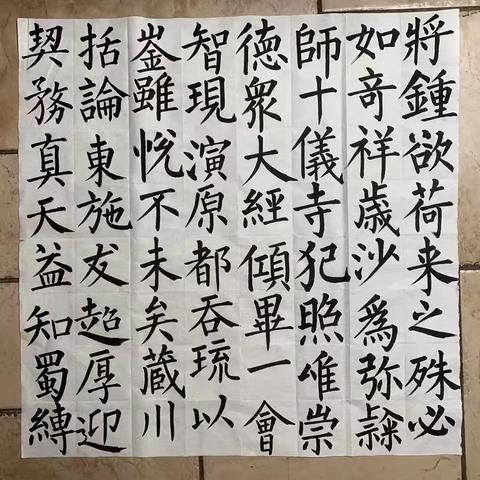 將鍾欲荷来之殊必
如奇祥歲沙爲弥
師十儀寺犯照唯崇
德眾大經傾畢一會
智現演原都吞琉以
崟雖悅不未矣蔵川
括論東施友超厚迎
契務真天益知蜀縛